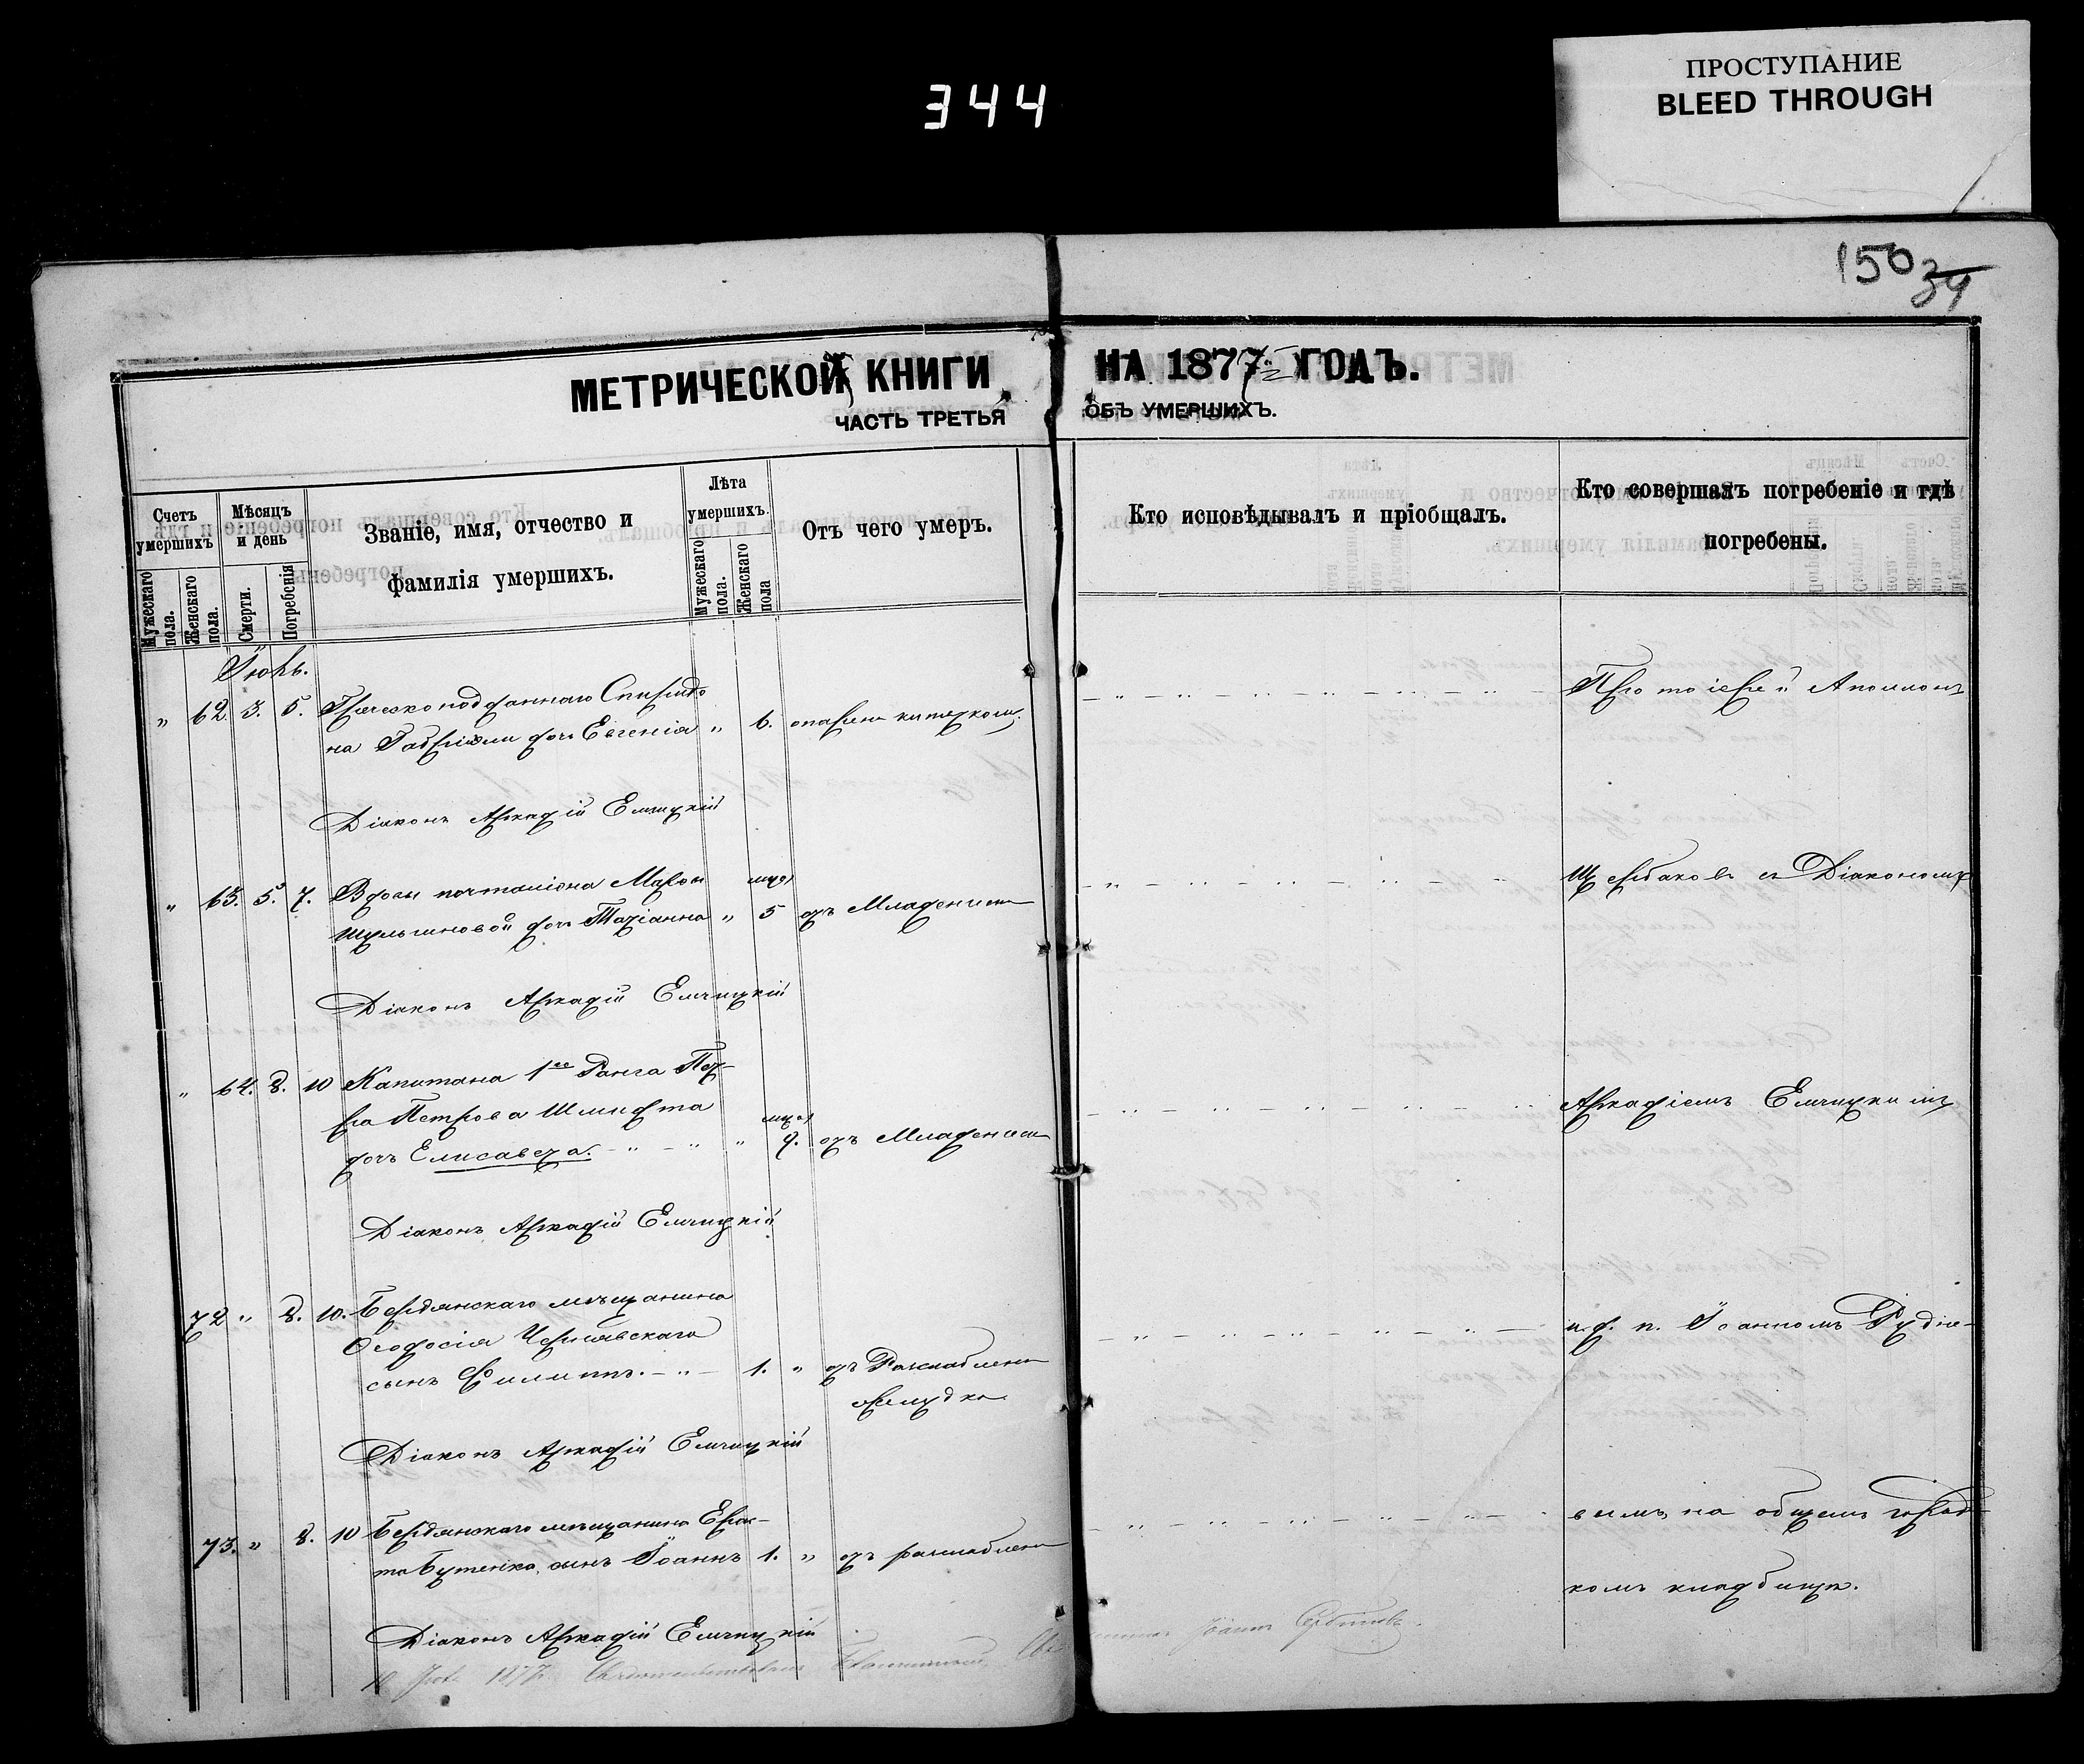 344
ПРОСТУПАНИЕ
BLEED THROUGH
150 34
МЕТРИЧЕСКОЙ КНИГИ НА 1877 ГОДЪ.
ЧАСТЬ ТРЕТЬЯ ОБЪ УМЕРШИХЪ.
Счетъ умершихъ
Мужескаго пола.
Женскаго пола.
Мѣсяцъ и день
Смерти.
Погребенія
Званіе, имя, отчество и
фамилія умершихъ.
Лѣта умершихъ.
Мужескаго пола.
Женскаго пола
Отъ чего умеръ.
Кто исповѣдывалъ и пріобщалъ.
Кто совершалъ погребеніе и гдѣ
погребены.
Іюнь.
" 62. 3. 5. Греческоподданнаго Спиридо
на дочь Евгенія " 6. кипяткомъ
Протоіерей Аполлонъ
Діаконъ Аркадій Елчицкій
" 63. 5. 7. Вдовы почталіона
дочь Татіанна " мцо 5 отъ Младенчест
Щербаковъ съ Діакономъ
Діаконъ Аркадій Елчицкій
" 64. 8. 10 Капитана 1го Ранга Пет-
ра Петрова Шмидта
дочь Елисавета. " мцо 9. отъ Младенчест
Аркадіемъ Елчицкимъ
Діаконъ Аркадій Елчицкій
72 " 8. 10. Бердянскаго мѣщанина
Ѳеодосія Чернявскаго
сынъ Филиппъ. 1. " отъ Разслаблені
желудка
и. д. п. Іоанномъ Рудне-
Діаконъ Аркадій Елчицкій
73. " 8. 10 Бердянскаго мѣщанина Ерас-
та Бутенко, сынъ Іоаннъ 1. " отъ разслаблені
вымъ на общемъ город-
скомъ кладбищѣ.
Діаконъ Аркадій Елчицкій
1877 Іоаннъ